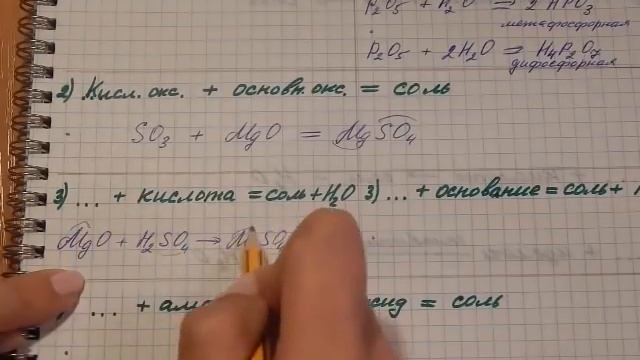 P₂O₅ + H₂O ⇒ 2HPO₃
метафосфорная
P₂O₅ + 2H₂O ⇒ H₄P₂O₇
дифосфорная
2) Кисл. окс. + основн. окс. = соль
SO₃ + MgO = MgSO₄
3) ... + кислота = соль + H₂O 3) ... + основание = соль +
MgO + H₂SO₄ → MgSO₄
... + = соль